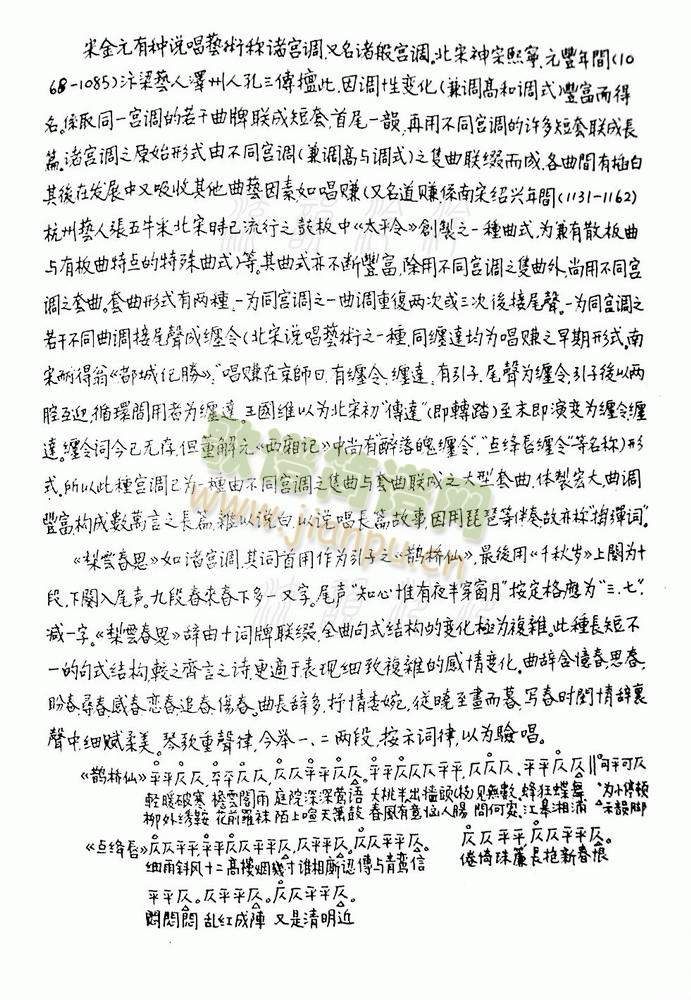 宋金元有种说唱藝術称诸宫调,又名诸般宫调。北宋神宗熙寧、元豐年間(10
68-1085)汴梁藝人澤州人孔三傳擅此,因调性变化(兼调高和调式)豐富而得
名。係取同一宫调的若干曲牌联成短套,首尾一韻,再用不同宫调的许多短套联成長
篇。诸宫调之原始形式由不同宫调(兼调高与调式)之隻曲联缀而成,各曲間有插白
其後在发展中又吸收其他曲藝因素,如唱赚(又名道赚係南宋绍兴年間(1131-1162)
杭州藝人張五牛采北宋時已流行之鼓板中《太平令》創製之一種曲式,为兼有散板曲
与有板曲特点的特殊曲式)等。其曲式亦不断豐富,除用不同宫调之隻曲外,尚用不同宫
调之套曲。套曲形式有两種、一为同宫调之一曲调重復两次或三次後接尾聲。一为同宫调之
若干不同曲调接尾聲成缠令(北宋说唱藝術之一種,同缠達均为唱赚之早期形式。南
宋耐得翁《都城纪勝》:"唱赚在京師日,有缠令、缠達、有引子、尾聲为缠令,引子後以两
腔互迎,循環間用者为缠達。王國维以为北宋初"傳達"(即轉踏)至末即演变为缠令缠
達。缠令词今已无存,但董解元《西厢记》中尚有"醉落魄缠令"、"点绛唇缠令"等名称)形
式。所以此種宫调已为一種由不同宫调之隻曲与套曲联成之大型套曲,体製宏大,曲调
豐富,構成數萬言之長篇,雜以说白,以说唱長篇故事,因用琵琶等伴奏故亦称"搊彈词"。
《梨雲春思》如诸宫调,其词首用作为引子之《鹊桥仙》,最後用《千秋岁》上闋为十
段,下闋入尾声。九段春來春下多一又字。尾声"知心惟有夜半穿窗月"按定格應为"三、七"、
减一字。《梨雲春思》辞由十词牌联缀,全曲句式结构的变化極为複雜。此種長短不
一的句式结構,較之齊言之诗,更適于表现细致複雜的感情变化。曲辞含憶春、思春、
盼春、尋春、感春、恋春、追春、傷春。曲長辞多,抒情委婉,従曉至晝而暮、写春时閨情辞裏
聲中,细腻柔美。琴歌重聲律,今举一、二两段,按示词律,以为驗唱。
《鹊桥仙》平平仄仄、平平仄仄、仄仄平平仄仄、仄平平仄仄平平、仄仄仄、平平仄仄‖可平可仄
軽暖破寒 檐雲閣雨 庭院深深莺语 大桃半出墙頭 杪见無數、蜂狂蝶舞 为小停頓
柳外绣鞍 花前羅袜 陌上喧天箫鼓 春風有意恼人腸 問何寔、江皋湘浦 △示韻脚
《点绛唇》仄仄平平,平平仄仄平平仄。仄平平仄。仄仄平平仄。 仄仄平平,仄仄平平仄。
细雨斜风十二高樓烟幾寸谁相廝认傳与青鸾信 倦倚珠簾長抢新春恨
平平仄。仄平平仄。仄仄平平仄。
悶悶悶 乱红成陣 又是清明近